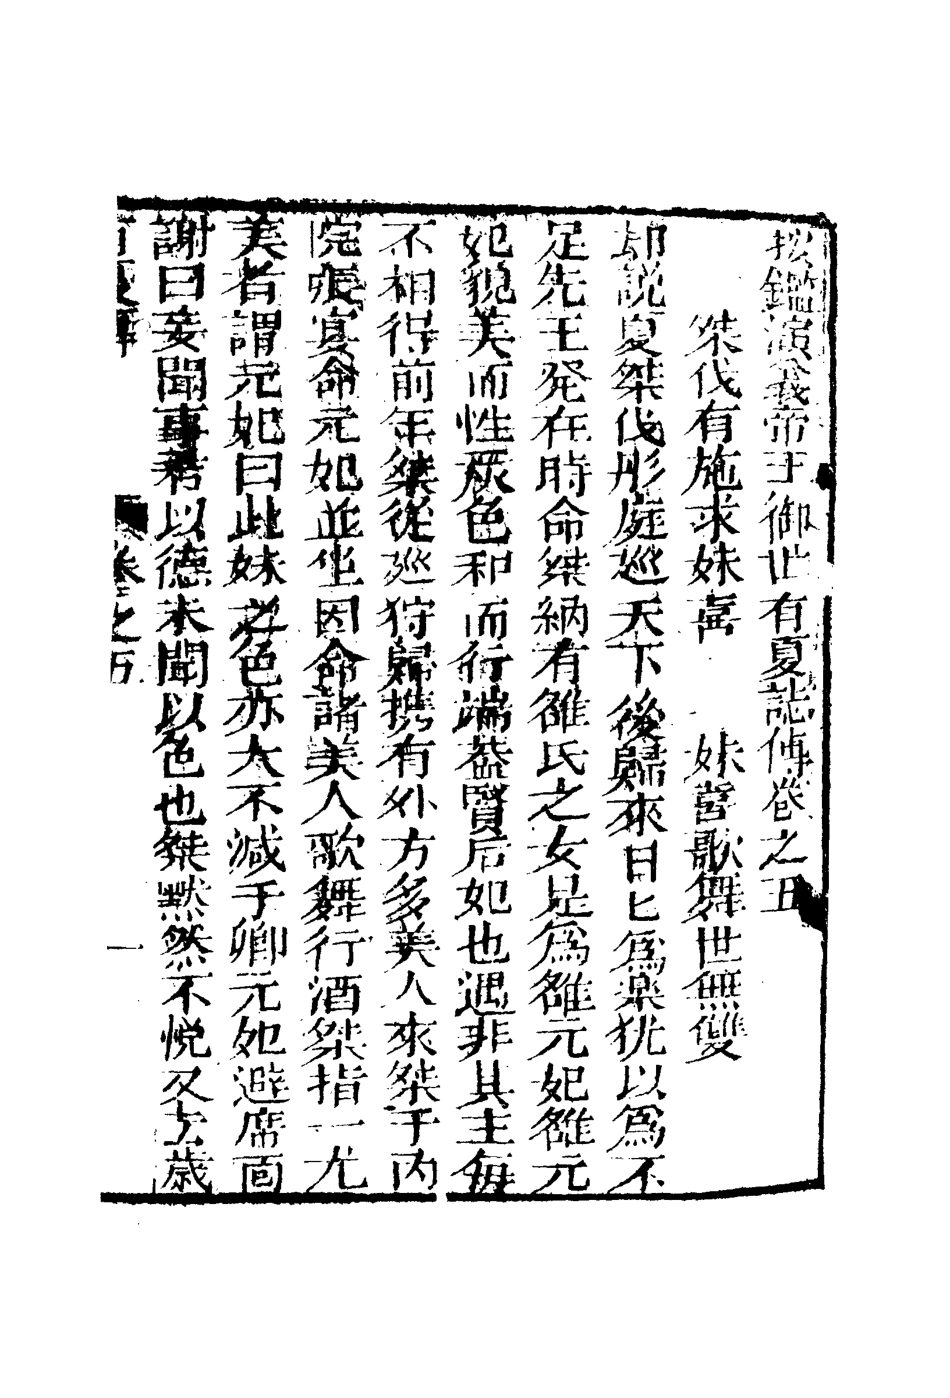 按鑑演義帝王御世有夏誌傳卷之五
桀伐有施求妹喜　妹喜歌舞世無雙
却説夏桀伐彤庭廵天下後歸來日匕爲楽犹以爲不
足先王発在時命桀納有雒氏之女是爲雒元妃雒元
妃貌美而性柔色和而行端葢賢后妃也遇非其主毎
不相得前年桀從廵狩歸携有外方多美人來桀于内
院張宴命元妃並坐因命諸美人歌舞行酒桀指一尤
美者謂元妃曰此妹之色亦大不减于卿元妃避席而
謝曰妾聞事君以德未聞以色也桀黙然不悦又去歳
有夏傳　卷之五　一